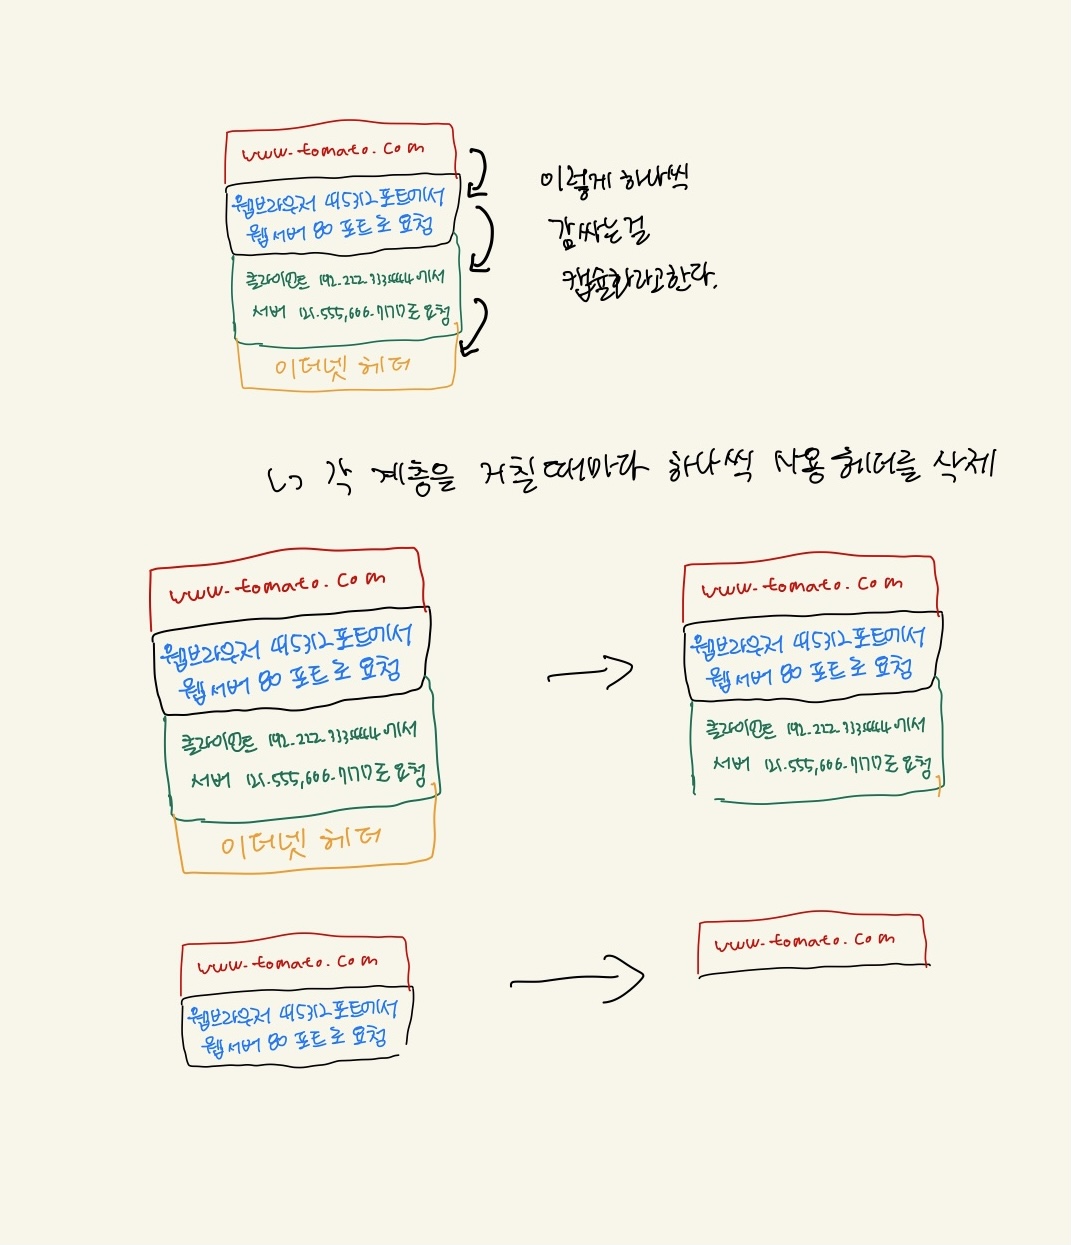 www.tomato.com
웹브라우저 45312 포트에서
웹 서버 80 포트로 요청
클라이언트 192.222.333.444에서
서버
로 요청
이더넷 헤더
이렇게 하나씩
감싸는걸
캡슐화라고한다.
각 계층을 거칠때마다 하나씩 사용 헤더를 삭제
www.tomato.com
웹브라우저 45312 포트에서
웹 서버 80 포트로 요청
클라이언트 192.222.333.444에서
서버
로 요청
이더넷 헤더
www.tomato.com
웹브라우저 45312 포트에서
웹 서버 80 포트로 요청
클라이언트 192.222.333.444에서
서버
로 요청
www.tomato.com
웹브라우저 45312 포트에서
웹 서버 80 포트로 요청
www.tomato.com